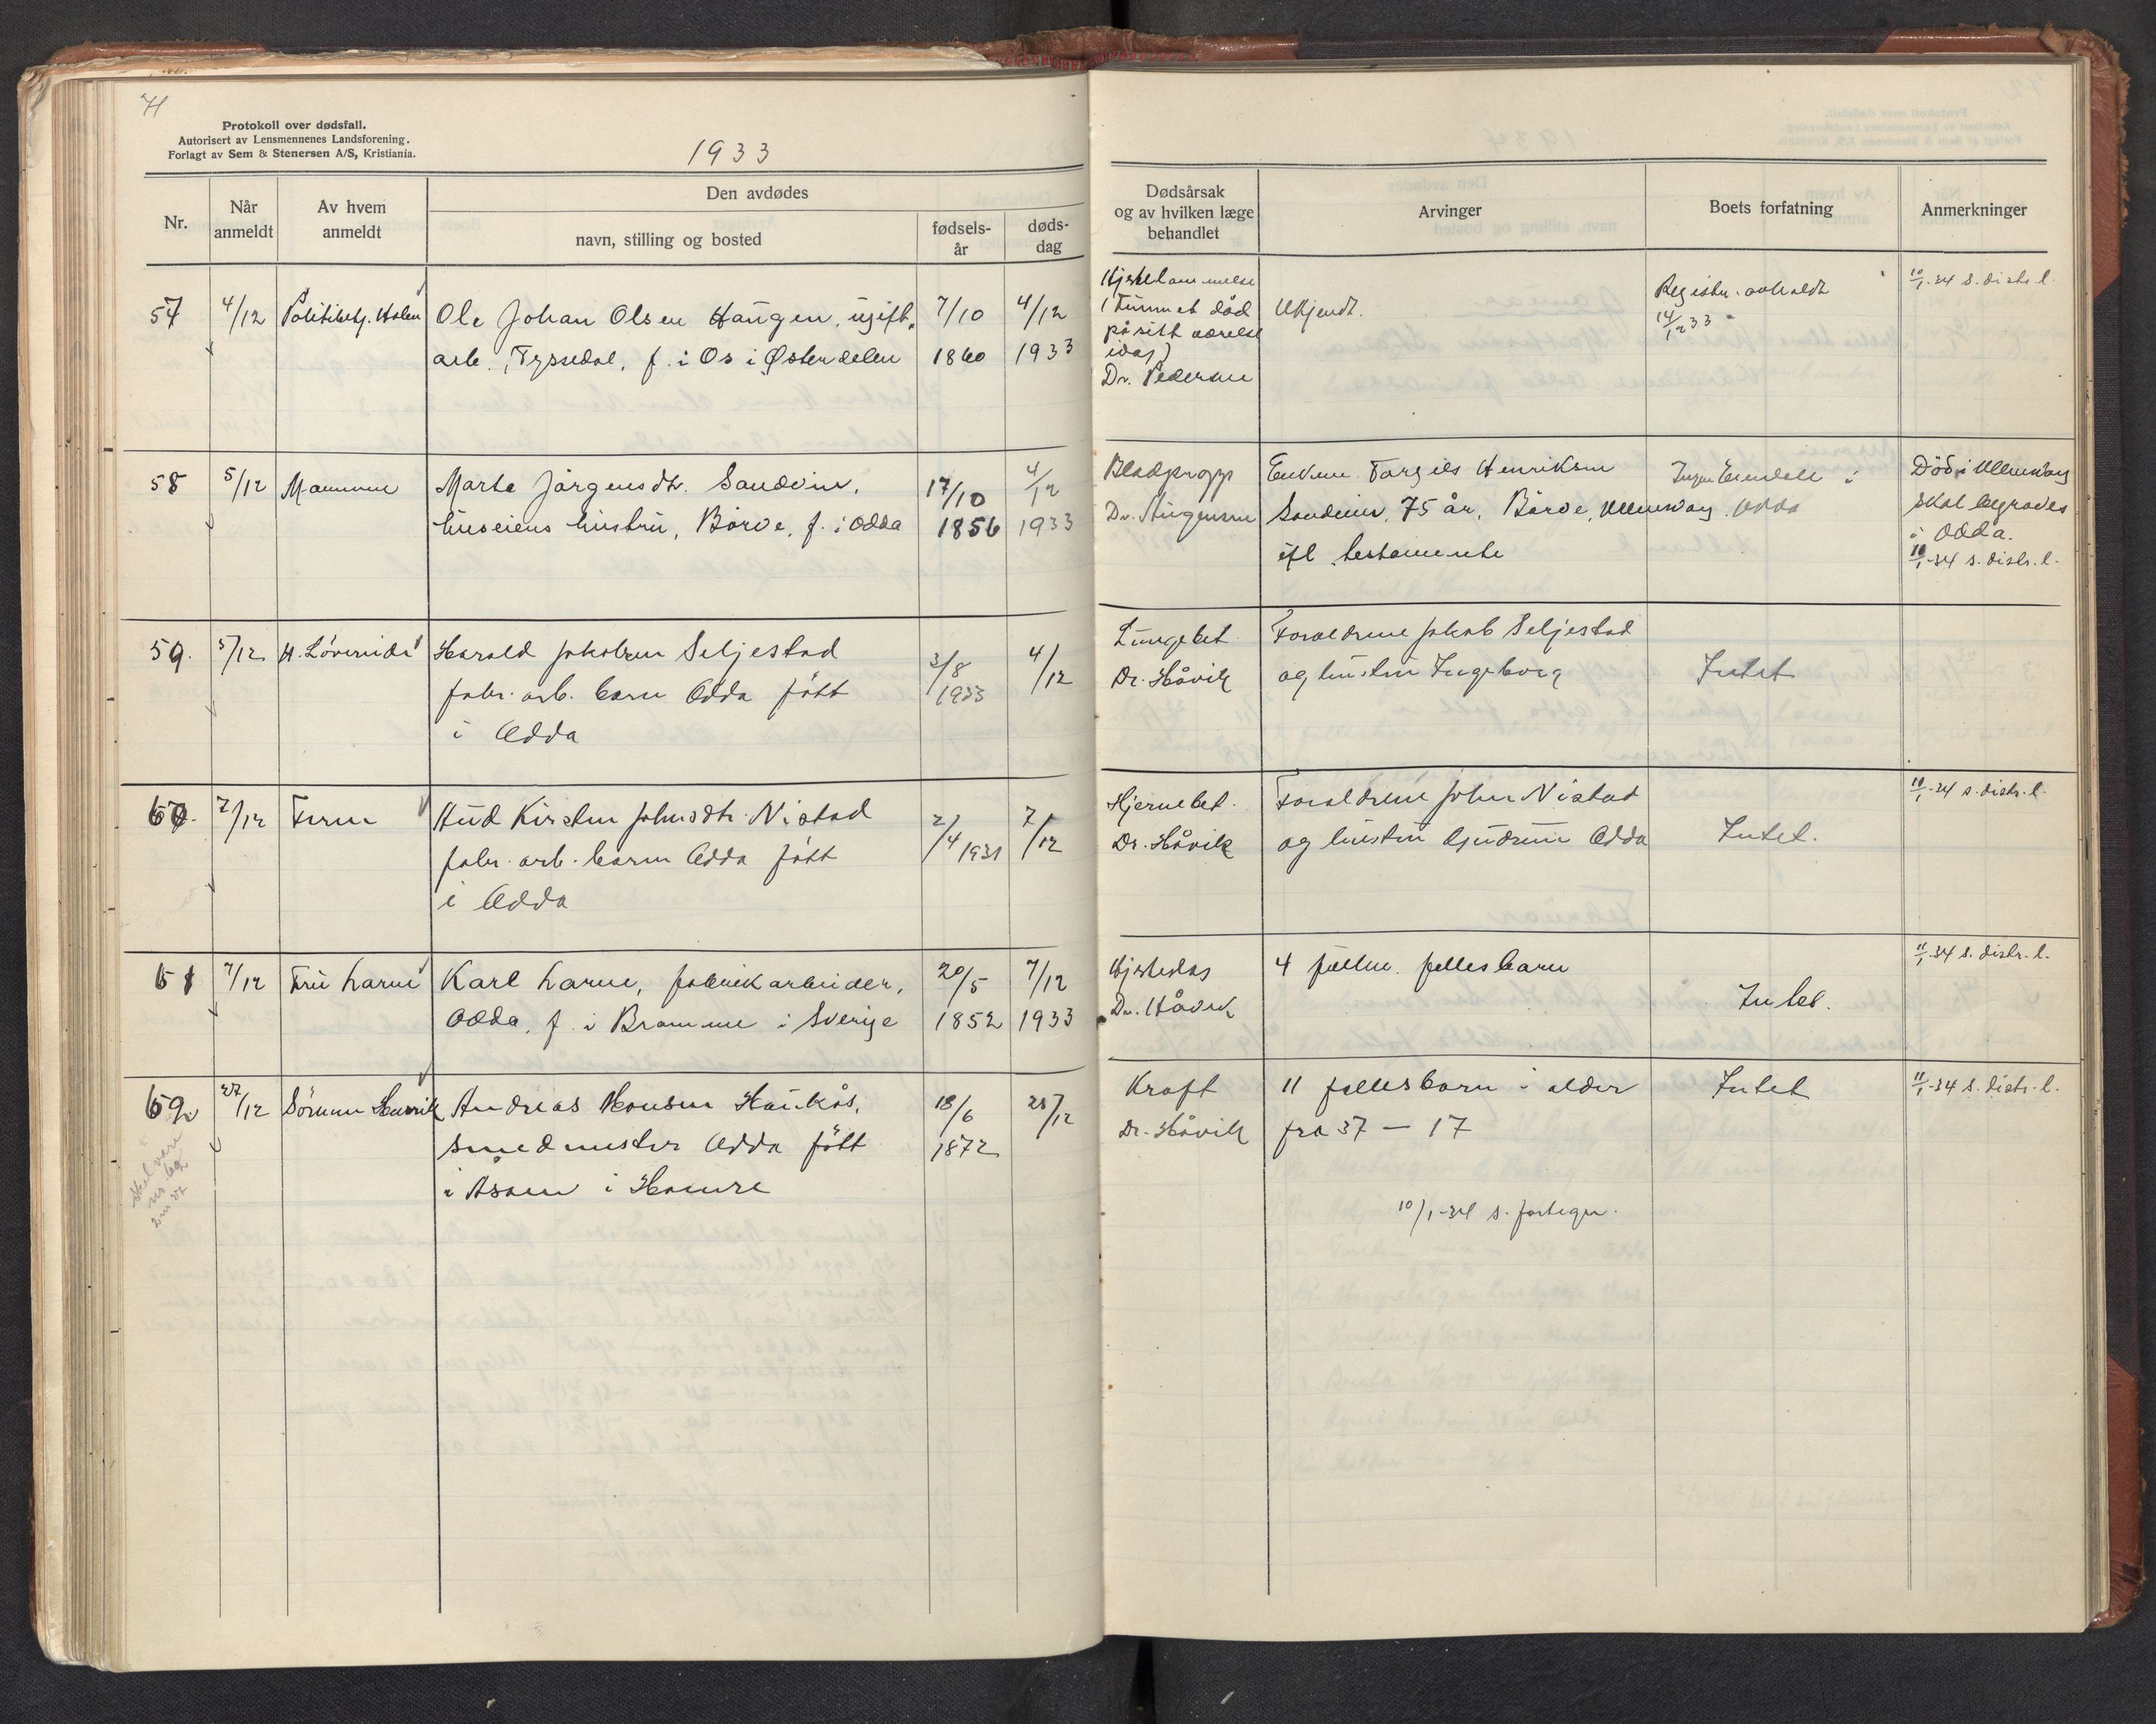 71
Protokoll over dødsfall.
Autorisert av Lensmennenes Landsforening.
Forlagt av Sem & Stenersen A/S, Kristiania.
1933
Nr.
Når anmeldt
Av hvem anmeldt
Den avdødes
navn, stilling og bosted
fødsels-år
døds-dag
Dødsårsak
og av hvilken læge
behandlet
Arvinger
Boets forfatning
Anmerkninger
57
4/12
Politibetj. Holen
Ole Johan Olsen Haugen, ugift,
arb. Tyssedal, f. i Os i Østerdalen
7/10
1860
4/12
1933
Hjertelammelse
(Funnet død
på sitt værelse
idag)
Dr. Pedersen
Ukjendt.
Registr. avholdt
14/12 33
10/1-34 s. distr. l.
58
5/12
Mannen
Marta Jørgensdtr. Sandvin,
huseiens hustru, Børve, f. i Odda
17/10
1856
4/12
1933
Blodpropp
Enkem. Torgils Henriksen
Sandvin, 75 år, Børve, Ullensvang
ifl. testamente
Ingen Eiendele i
Odda
Död i Ullensvang
skal begraves
i Odda.
10/1-34 s. distr. l.
59.
5/12
Harald Jakobsen Seljestad
fabr. arb. barn Odda fött
i Odda
3/8
1933
4/12
Lungebet.
Dr. Håvik
Foreldrene Jakob Seljestad
og hustru Ingeborg
Intet
60.
7/12
Kirsten Johnsdtr. Nistad
fabr. arb. barn Odda fött
i Odda
2/4 1931
7/12
Hjernebet.
Dr. Håvik
Foreldrene John Nistad
og hustru Gudrun Odda
Intet.
11/1-34 s. distr. l.
61
7/12
Fru Larm
Karl Larm, fabrikarbeider,
Odda, f. i Bramme i Sverige
20/5
1852
7/12
1933
Dr. Håvik
4 fuldm. fellesbarn
Intet.
11/1-34 s. distr. l.
62
27/12
Sønnen Henrik
Andreas Hansen Haukås,
smedmester Odda fött
i Åsane i Hamre
18/6
1872
25/12
Kraft
Dr. Håvik
11 fellesbarn i alder
fra 37 – 17
Intet
11/1-34 s. distr. l.
10/1-34 s. fortegn.
Skal være
nr. 62